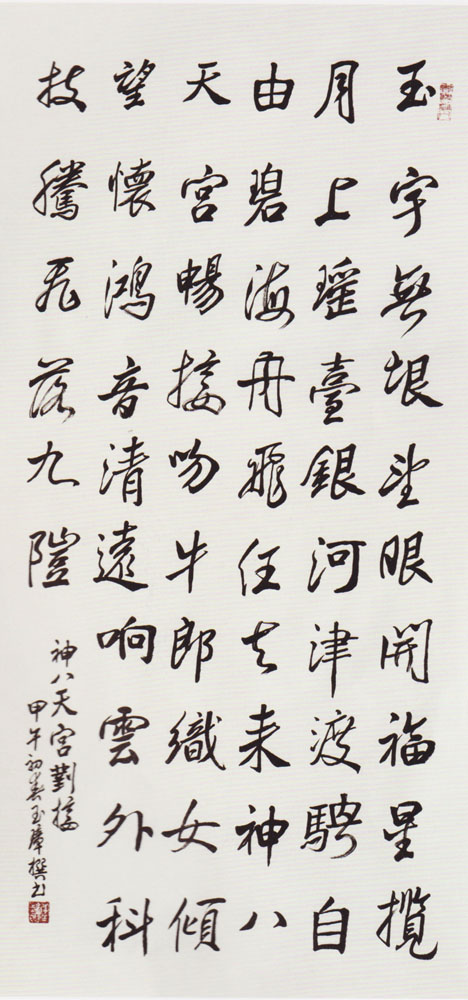 玉宇無垠望眼開福星攬
月上瑤臺銀河津渡騁自
由碧海舟飛任去来神八
天宮暢接吻牛郎織女傾
望懷鴻音清遠响雲外科
技騰飛落九隑
神八天宮對接
甲午初春玉撰书